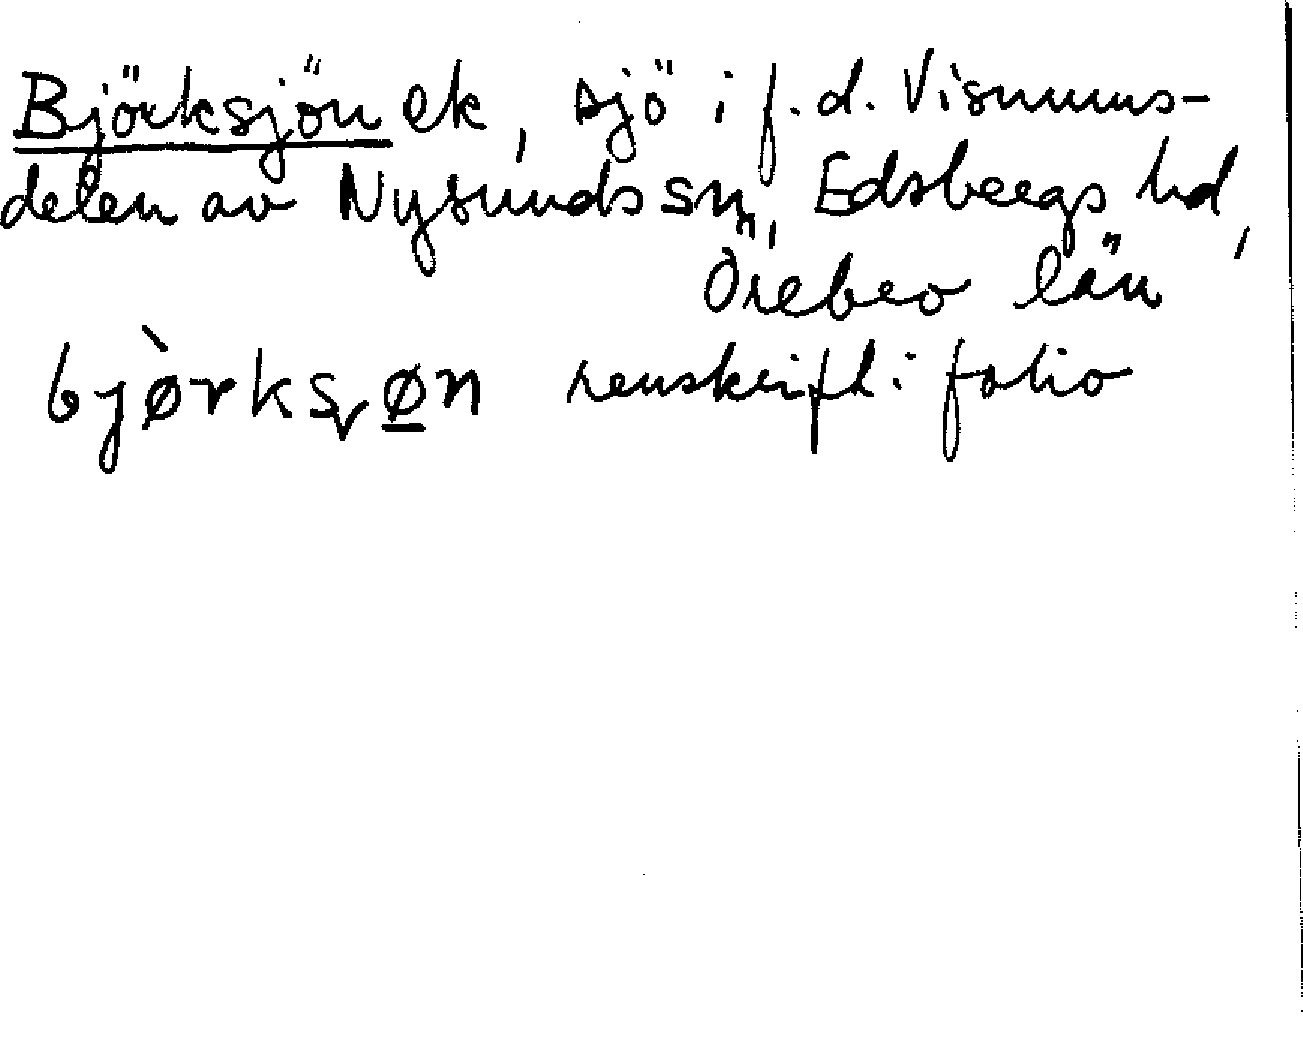 Björksjön ek, sjö i f.d. Visnums-
delen av Nysunds sn, Edsbergs hd,
Örebro län
bjørksvø̲n renskrift i folio